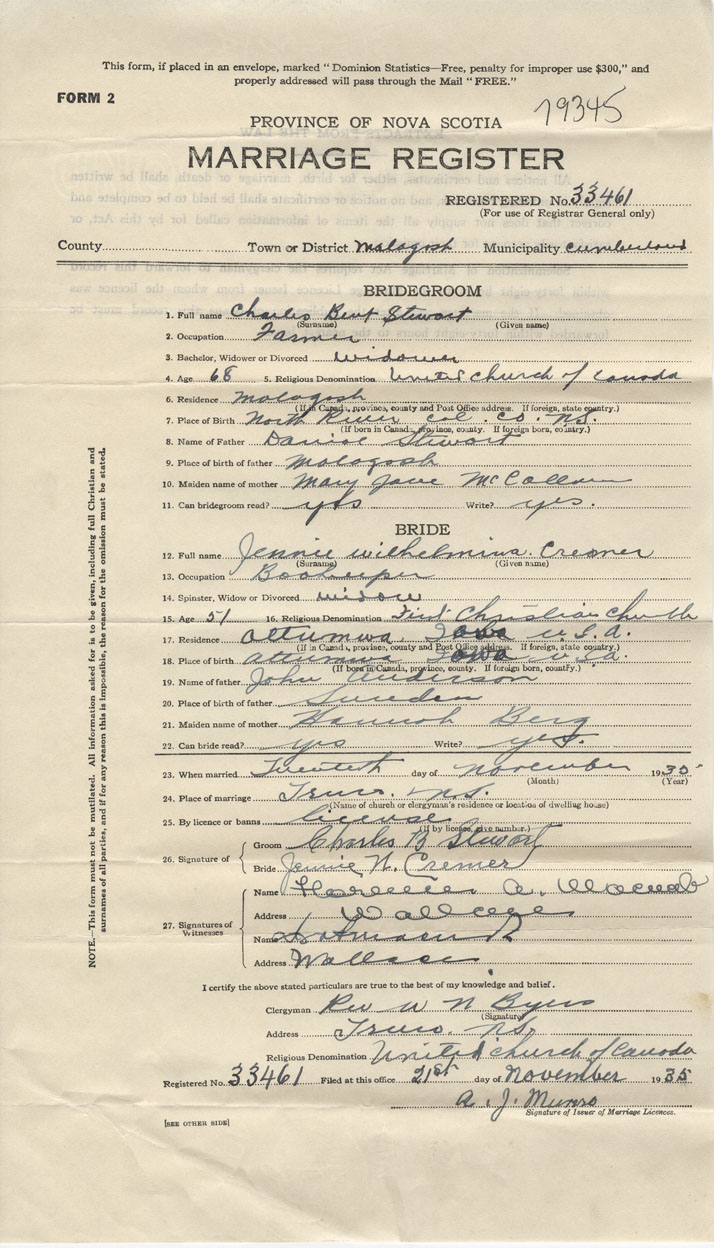 This form, if placed in an envelope, marked "Dominion Statistics—Free, penalty for improper use $300," and
properly addressed will pass through the Mail "FREE."
FORM 2
19345
PROVINCE OF NOVA SCOTIA
MARRIAGE REGISTER
REGISTERED No. 33461
(For use of Registrar General only)
County Town or District Malagash Municipality Cumberland
BRIDEGROOM
1. Full name Charles Bent Stewart
(Surname) (Given name)
2. Occupation Farmer
3. Bachelor, Widower or Divorced widower
4. Age 68 5. Religious Denomination United Church of Canada
6. Residence Malagash
(If in Canada, province, county and Post Office address. If foreign, state country.)
7. Place of Birth North River Col. Co. N.S.
(If born in Canada, province, county. If foreign born, country.)
8. Name of Father Daniel Stewart
9. Place of birth of father Malagash
10. Maiden name of mother Mary Jane McCallum
11. Can bridegroom read? yes Write? yes.
BRIDE
12. Full name Jennie Wilhelmina Cremer
(Surname) (Given name)
13. Occupation Bookeeper
14. Spinster, Widow or Divorced widow
15. Age 51 16. Religious Denomination First Christian Church
17. Residence Ottumwa, Iowa U.S.A.
(If in Canada, province, county and Post Office address. If foreign, state country.)
18. Place of birth Ottumwa Iowa U.S.A.
(If born in Canada, province, county. If foreign, country.)
19. Name of father John Anderson
20. Place of birth of father Sweden
21. Maiden name of mother Hannah Berg
22. Can bride read? yes Write? yes.
23. When married Twentieth day of November 1935
(Month) (Year)
24. Place of marriage Truro. N.S.
(Name of church or clergyman's residence or location of dwelling house)
25. By licence or banns license
(If by licence, give number.)
26. Signature of Groom Charles B Stewart
Bride Jennie W. Cremer
27. Signatures of Witnesses
Name Florence A. Macnab
Address Wallace
Name
Address Wallace
I certify the above stated particulars are true to the best of my knowledge and belief.
Clergyman Rev W N Byers
(Signature)
Address Truro. N.S.
Religious Denomination United Church of Canada
Registered No. 33461 Filed at this office 21st day of November 1935
A. J. Munro
Signature of Issuer of Marriage Licences.
[SEE OTHER SIDE]
NOTE.—This form must not be mutilated. All information asked for is to be given, including full Christian and
surnames of all parties, and if for any reason this is impossible, the reason for the omission must be stated.